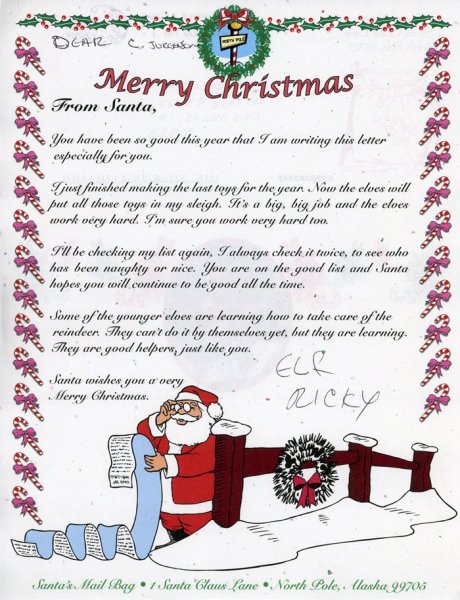 NORTH POLE
DEAR C JURGENSON
Merry Christmas
From Santa,
You have been so good this year that I am writing this letter
especially for you.
I just finished making the last toys for the year. Now the elves will
put all those toys in my sleigh. It's a big, big job and the elves
work very hard. I'm sure you work very hard too.
I'll be checking my list again, I always check it twice, to see who
has been naughty or nice. You are on the good list and Santa
hopes you will continue to be good all the time.
Some of the younger elves are learning how to take care of the
reindeer. They can't do it by themselves yet, but they are learning.
They are good helpers, just like you.
ELF
RICKY
Santa wishes you a very
Merry Christmas.
Santa's Mail Bag • 1 Santa Claus Lane • North Pole, Alaska 99705